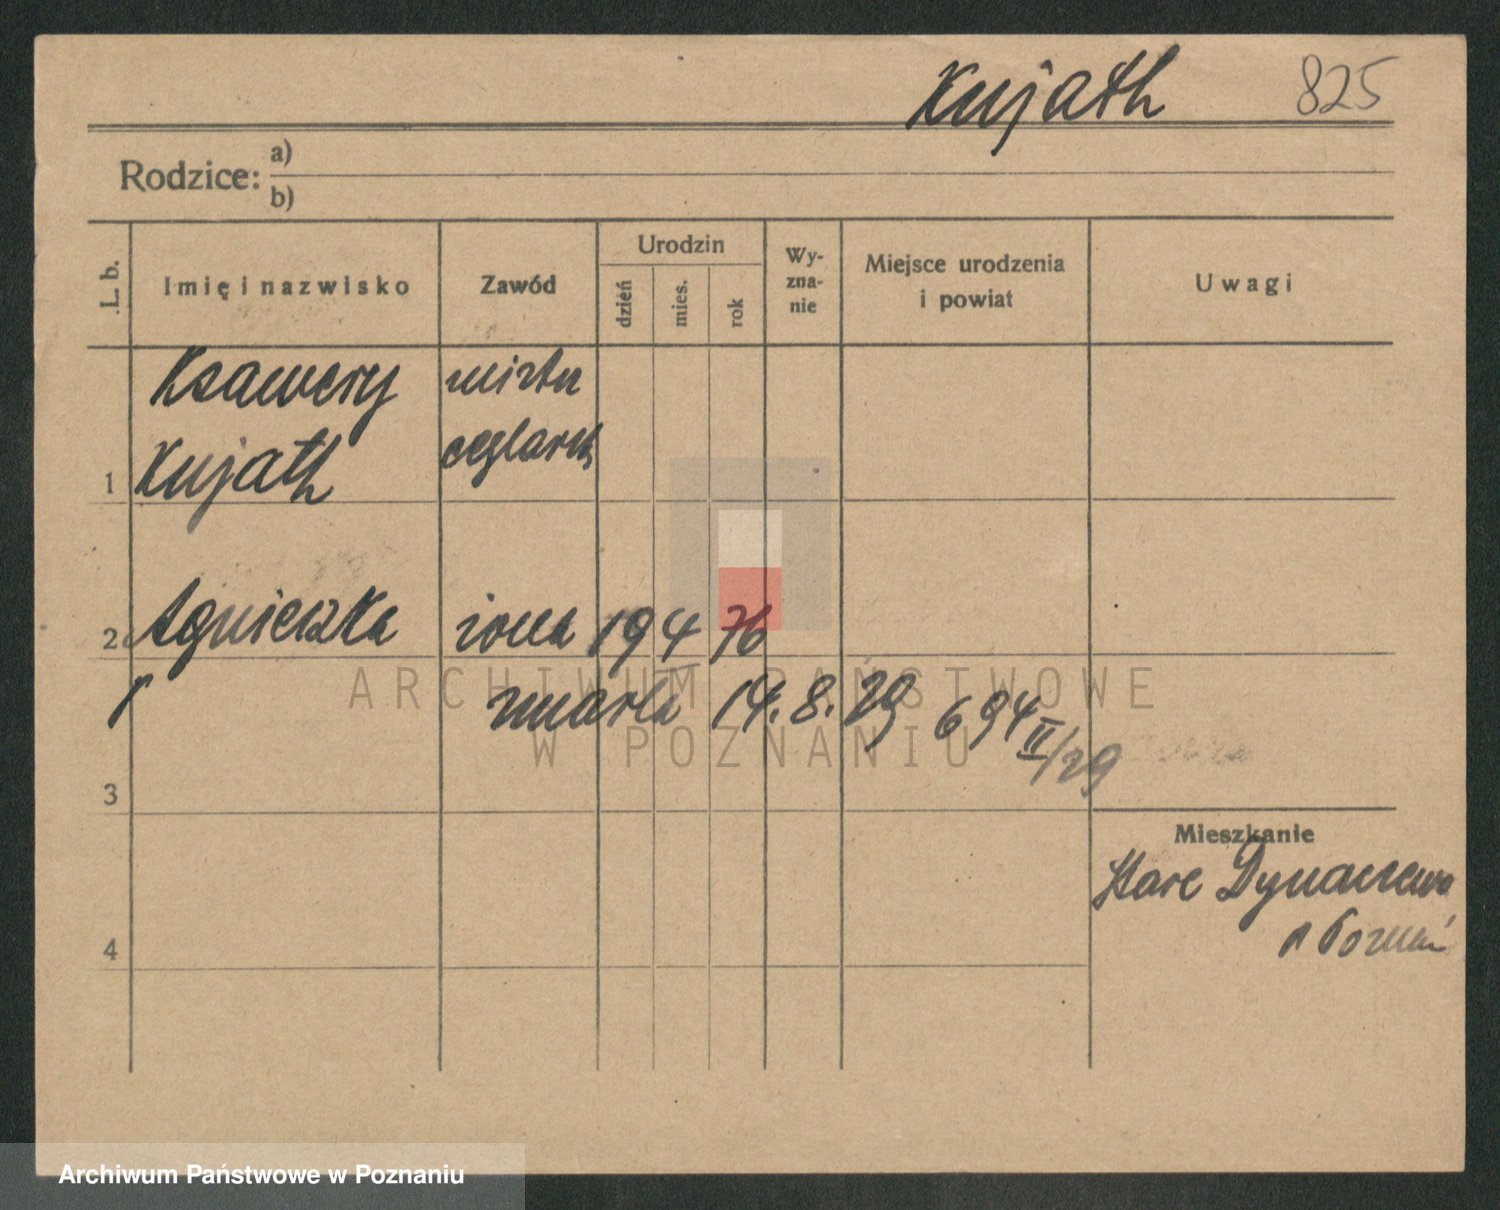 Kujath 825
Rodzice: a)
b)
L. b.
Imię i nazwisko
Zawód
Urodzin
dzień
mies.
rok
Wy-
zna-
nie
Miejsce urodzenia
i powiat
Uwagi
Ksawery
Kujath
mistrz
1
2 Agnieszka żona 19 4 76
zmarła 14.8.29 694 II/29
3
4
Mieszkanie
Stare
ARCHIWUM PAŃSTWOWE
W POZNANIU
Archiwum Państwowe w Poznaniu